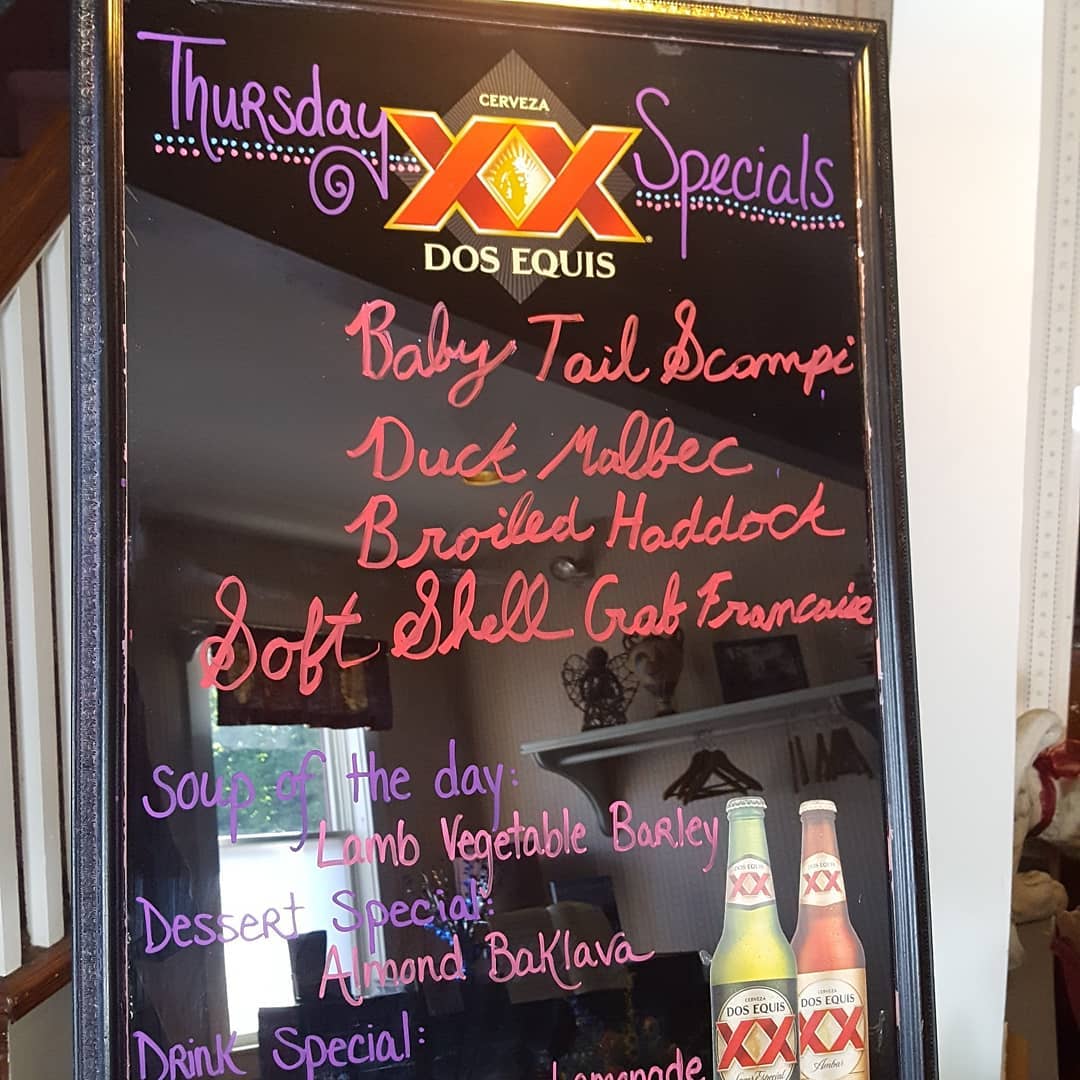 Thursday Specials
CERVEZA
XX
DOS EQUIS
Baby Tail Scampi
Duck Malbec
Broiled Haddock
Soft Shell Crab Francaise
Soup of the day:
Lamb Vegetable Barley
Dessert Special:
Almond Baklava
Drink Special:
Lemonade
DOS EQUIS
XX
DOS EQUIS
XX
CERVEZA
DOS EQUIS
XX
Lager Especial
CERVEZA
DOS EQUIS
XX
Ambar